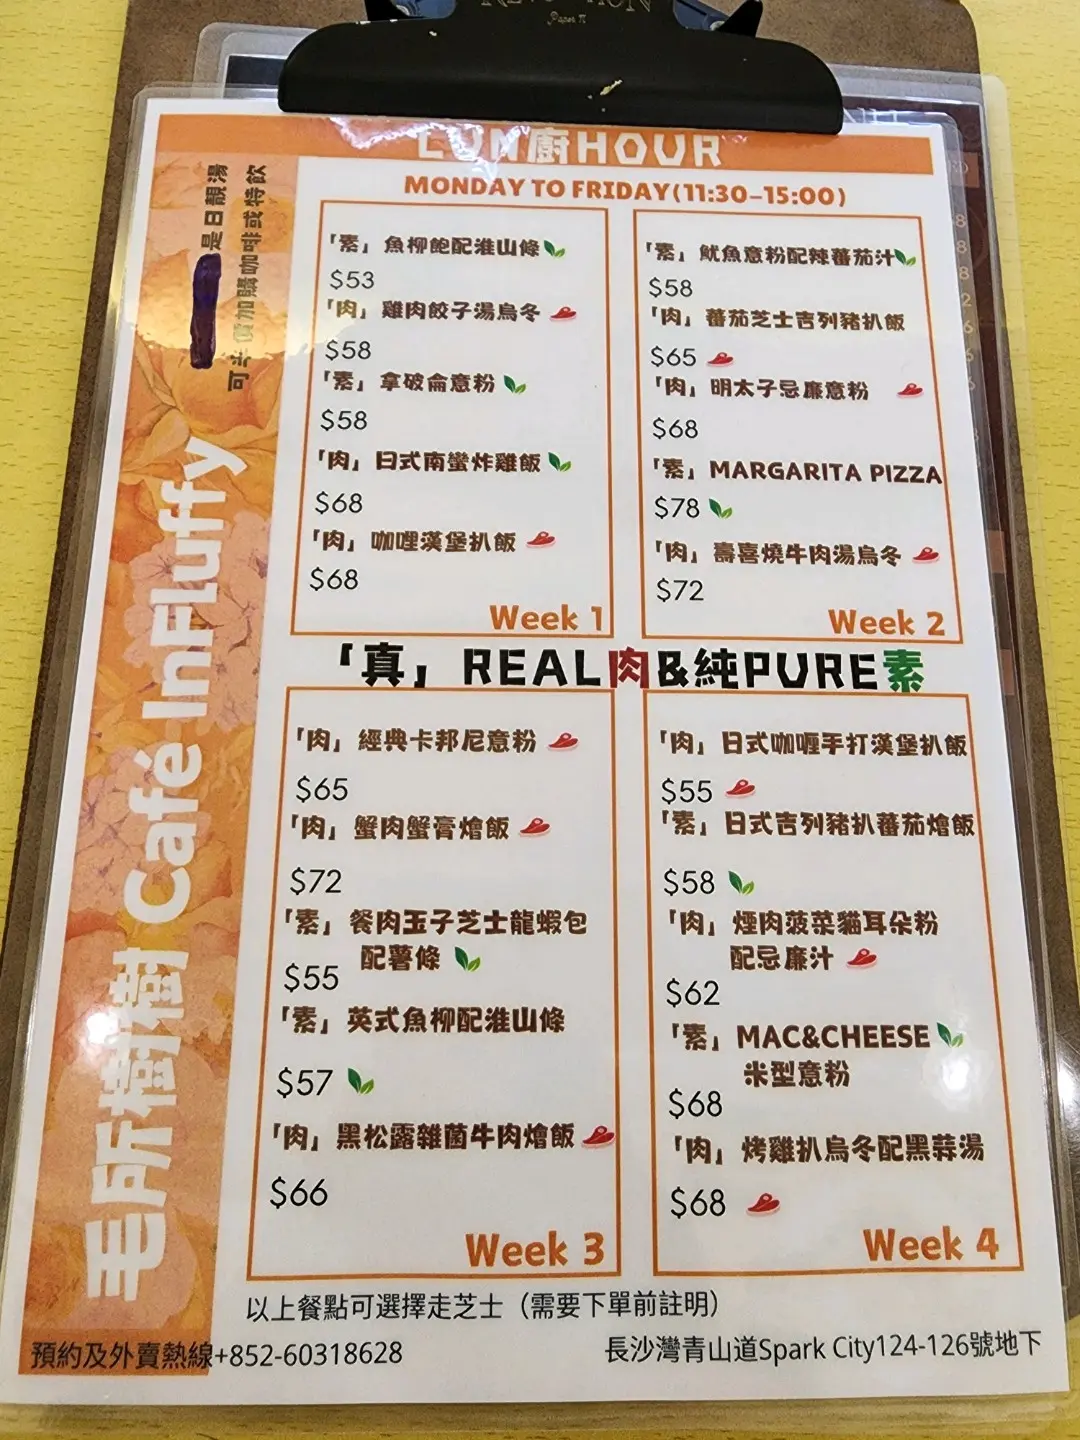 LUN廚HOUR
MONDAY TO FRIDAY(11:30-15:00)
是日靚湯
可半價加購咖啡或特飲
毛所樹樹 Café InFluffy
「素」魚柳飽配淮山條
$53
「肉」雞肉餃子湯烏冬
$58
「素」拿破侖意粉
$58
「肉」日式南蠻炸雞飯
$68
「肉」咖哩漢堡扒飯
$68
Week 1
「素」魷魚意粉配辣蕃茄汁
$58
「肉」蕃茄芝士吉列豬扒飯
$65
「肉」明太子忌廉意粉
$68
「素」MARGARITA PIZZA
$78
「肉」壽喜燒牛肉湯烏冬
$72
Week 2
「真」REAL肉&純PURE素
「肉」經典卡邦尼意粉
$65
「肉」蟹肉蟹膏燴飯
$72
「素」餐肉玉子芝士龍蝦包
配薯條
$55
「素」英式魚柳配淮山條
$57
「肉」黑松露雜菌牛肉燴飯
$66
Week 3
「肉」日式咖喱手打漢堡扒飯
$55
「素」日式吉列豬扒蕃茄燴飯
$58
「肉」煙肉菠菜貓耳朵粉
配忌廉汁
$62
「素」MAC&CHEESE
米型意粉
$68
「肉」烤雞扒烏冬配黑蒜湯
$68
Week 4
以上餐點可選擇走芝士（需要下單前註明）
預約及外賣熱線+852-60318628
長沙灣青山道Spark City124-126號地下